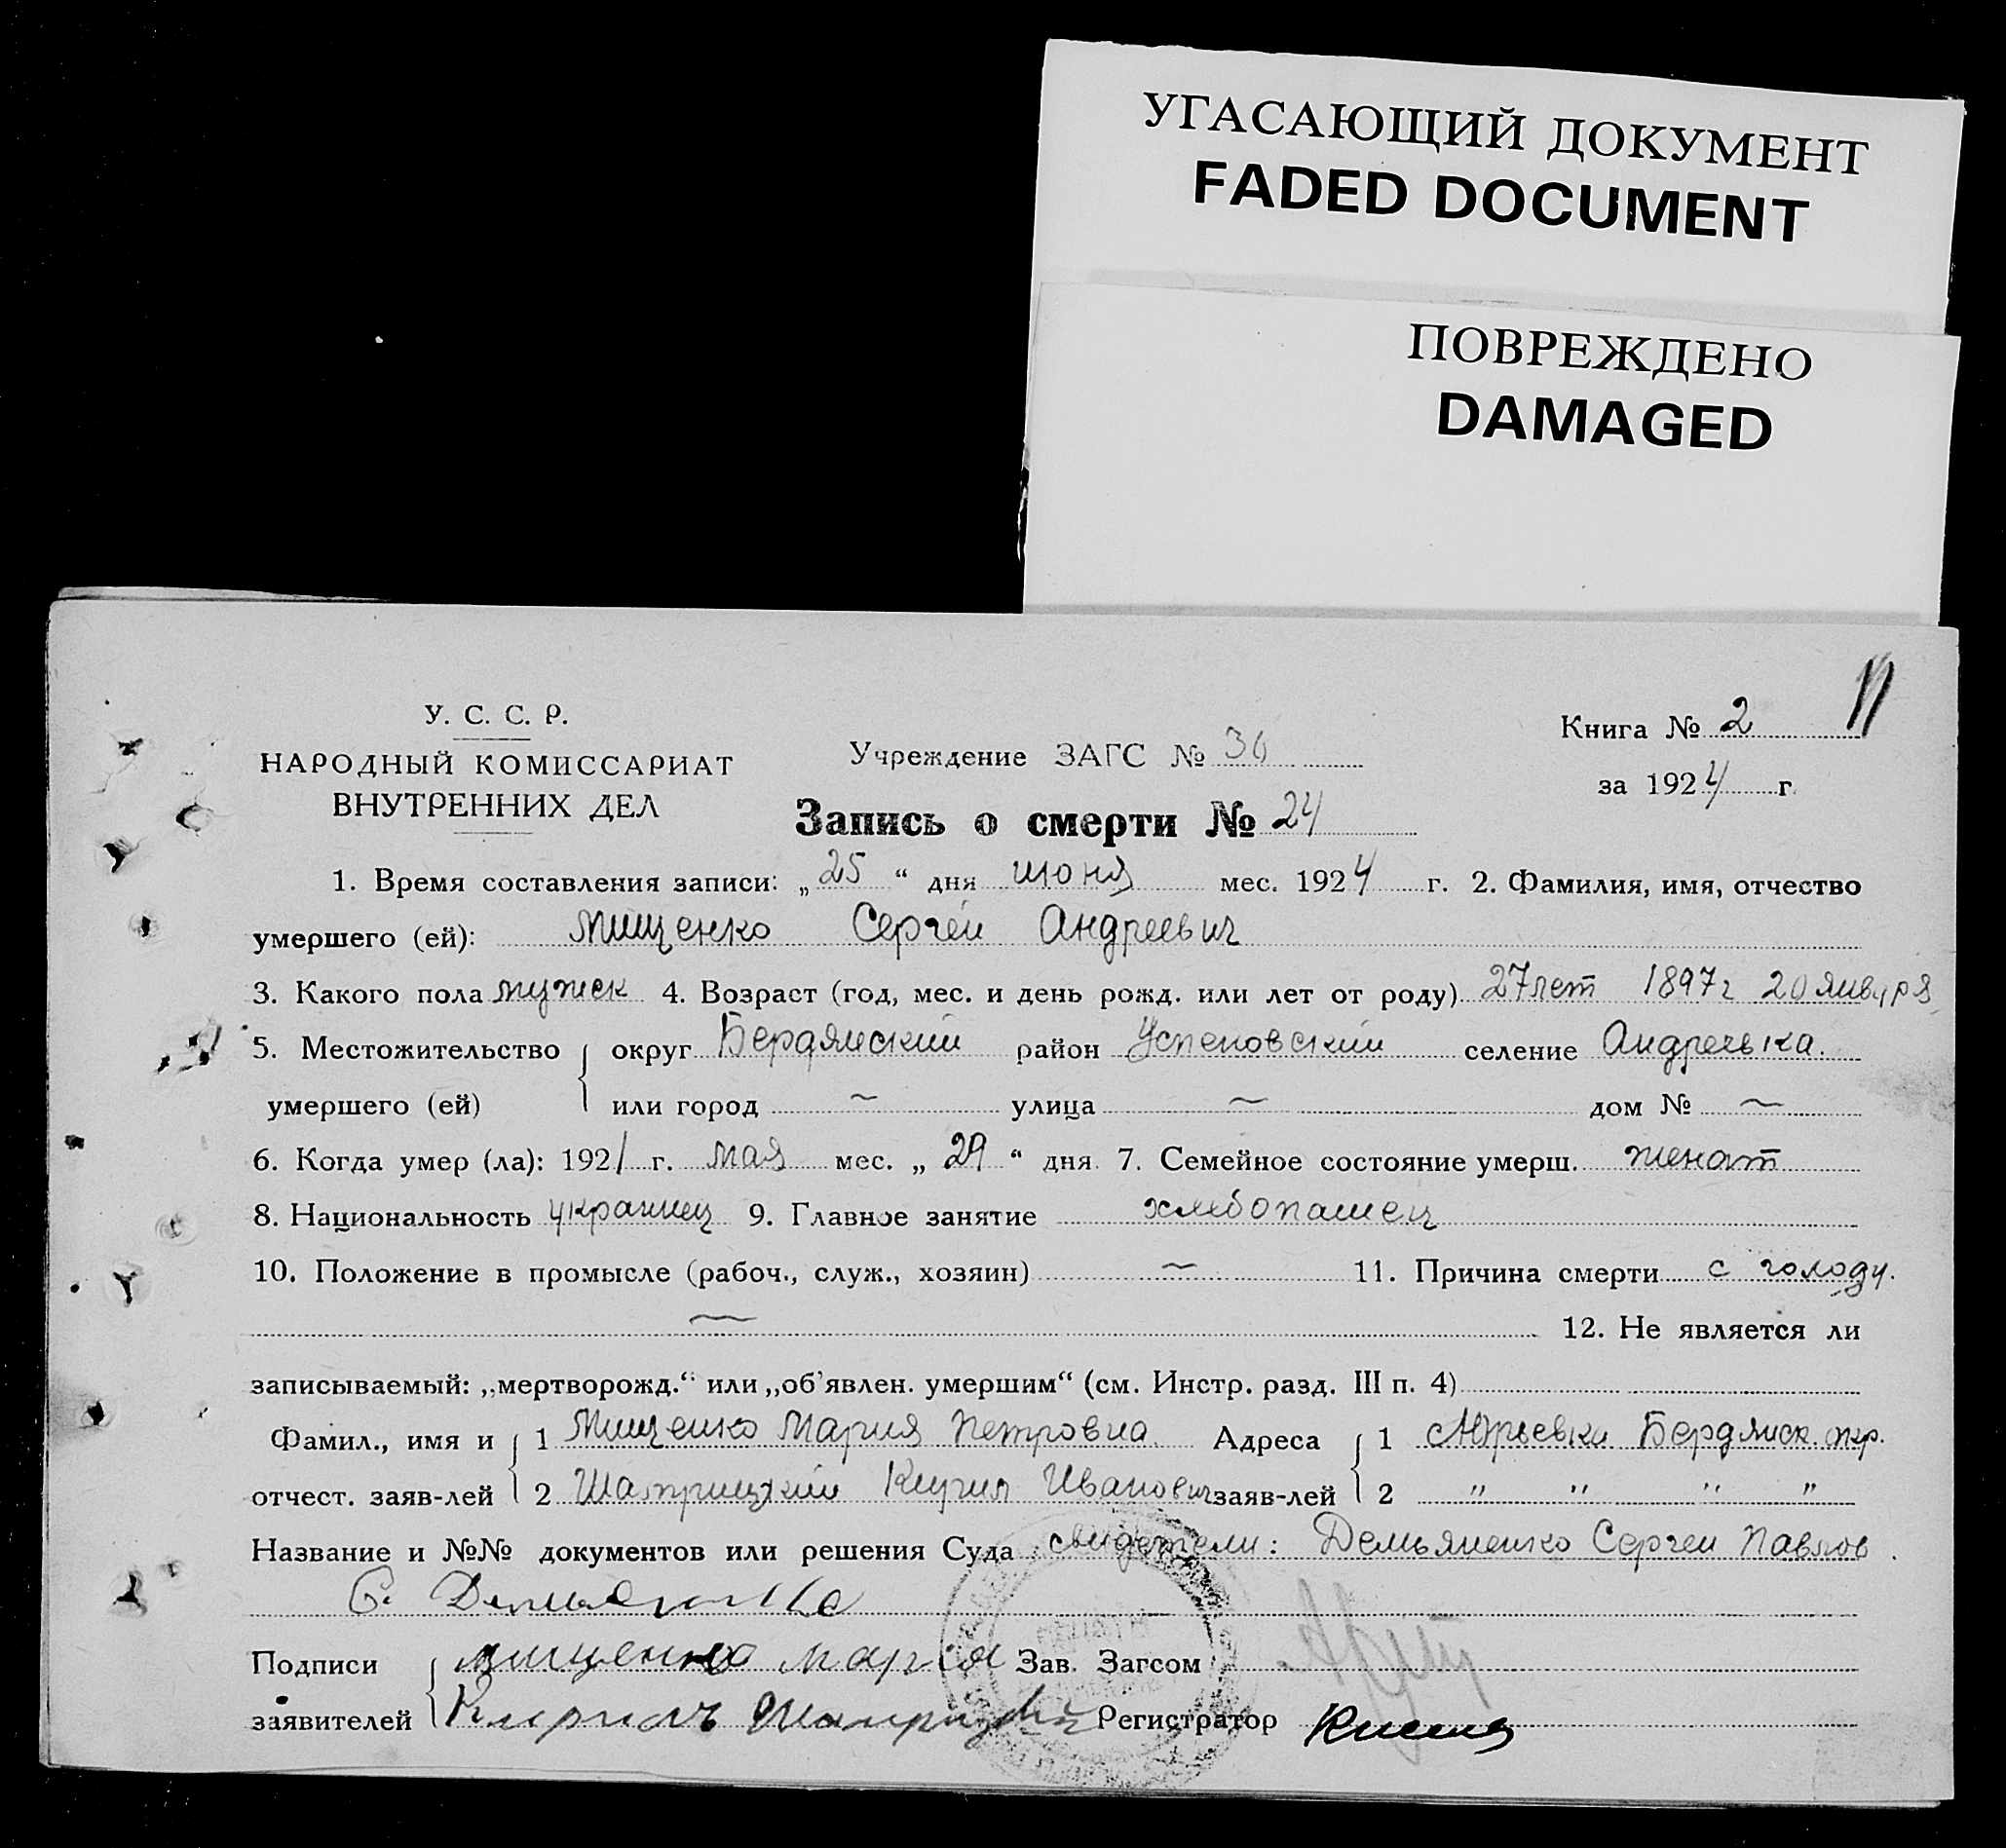 УГАСАЮЩИЙ ДОКУМЕНТ
FADED DOCUMENT
ПОВРЕЖДЕНО
DAMAGED
У. С. С. Р.
НАРОДНЫЙ КОМИССАРИАТ
ВНУТРЕННИХ ДЕЛ
Учреждение ЗАГС № 30
Книга № 2
за 1924 г.
Запись о смерти № 24
1. Время составления записи: „25“ дня июня мес. 1924 г. 2. Фамилия, имя, отчество
умершего (ей): Мищенко Сергей Андреевич
3. Какого пола мужск 4. Возраст (год, мес. и день рожд. или лет от роду) 27 лет 1897 г 20 января
5. Местожительство округ Бердянский район Успеновский селение Андреевка.
умершего (ей) или город ~ улица ~ дом № ~
6. Когда умер (ла): 1921 г. мая мес. „29“ дня 7. Семейное состояние умерш. женат
8. Национальность украинец 9. Главное занятие хлебопашец
10. Положение в промысле (рабоч., служ., хозяин) ~ 11. Причина смерти с голоду.
~ 12. Не является ли
записываемый: „мертворожд.“ или „об'явлен. умершим“ (см. Инстр. разд. III п. 4)
Фамил., имя и 1 Мищенко Мария Петровна Адреса 1 Юрьевка Бердянск. окр.
отчест. заяв-лей 2 Кирил Иванович заяв-лей 2 " " " "
Название и №№ документов или решения Суда свидетели: Демьяненко Сергей Павлов
С. Демьяненко
Подписи Мищенко Марія Зав. Загсом
заявителей Кирилъ Регистратор